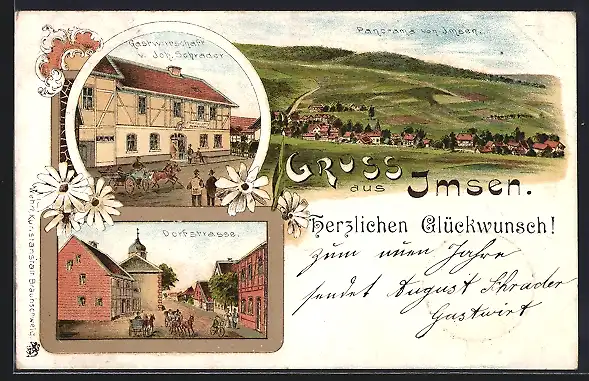 Gastwirtschaft
v. Joh. Schrader
Panorama von Imsen.
Gruss
aus Imsen.
Herzlichen Glückwunsch!
zum neuen Jahre
sendet August Schrader
Gastwirt
Dorfstrasse.
Kunstanstalt Braunschweig